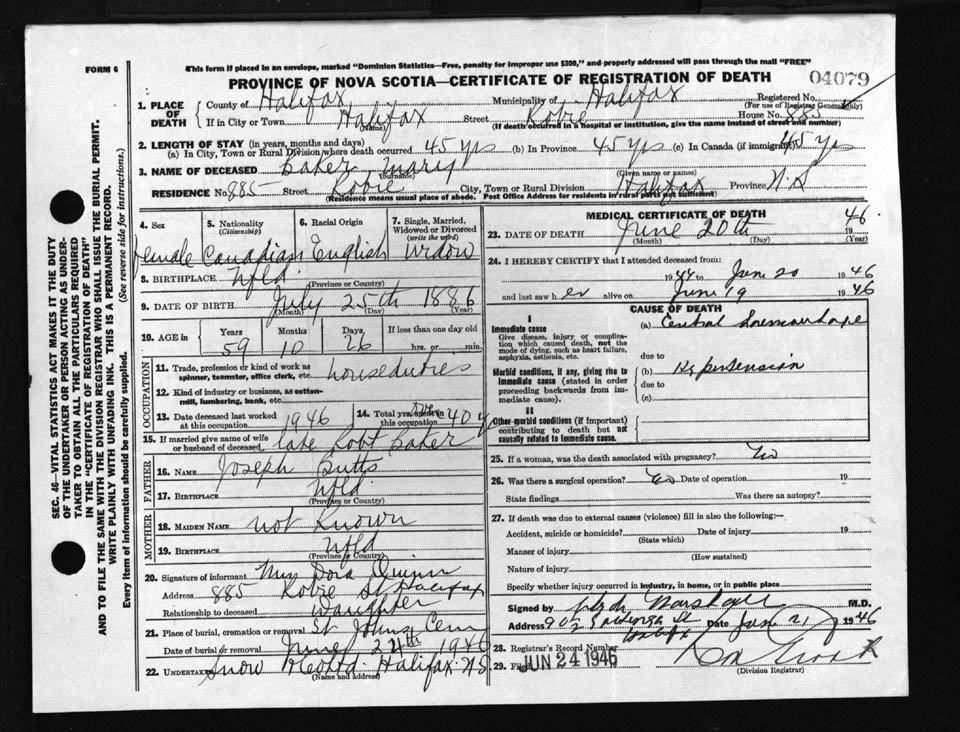 FORM 6
This form if placed in an envelope, marked "Dominion Statistics—Free, penalty for improper use $300," and properly addressed will pass through the mail "FREE"
PROVINCE OF NOVA SCOTIA—CERTIFICATE OF REGISTRATION OF DEATH 04079
1. PLACE OF DEATH
County of Halifax Municipality of Halifax Registered No.
(For use of Registrar General only)
If in City or Town Halifax Street Robie House No. 885
(Name) (If death occurred in a hospital or institution, give the name instead of street and number)
2. LENGTH OF STAY (in years, months and days)
(a) In City, Town or Rural Division where death occurred 45 yrs (b) In Province 45 yrs (c) In Canada (if immigrant) 45 yrs
3. NAME OF DECEASED Baker Mary
(Surname) (Given name or names)
RESIDENCE No. 885 Street Robie City, Town or Rural Division Halifax Province N.S
(Residence means usual place of abode. Post Office Address for residents in rural parts not sufficient)
4. Sex 5. Nationality (Citizenship) 6. Racial Origin 7. Single, Married, Widowed or Divorced (write the word)
Female Canadian English Widow
8. BIRTHPLACE Nfld.
(Province or Country)
9. DATE OF BIRTH July 25th 1886
(Month) (Day) (Year)
10. AGE in Years Months Days If less than one day old
59 10 26 hrs. or min.
OCCUPATION
11. Trade, profession or kind of work as spinner, teamster, office clerk, etc. houseduties
12. Kind of industry or business, as cotton-mill, lumbering, bank, etc.
13. Date deceased last worked at this occupation 1946 14. Total yrs. spent in this occupation 40 yrs
15. If married give name of wife or husband of deceased late Robt Baker
FATHER
16. NAME Joseph Butts
17. BIRTHPLACE Nfld
(Province or Country)
MOTHER
18. MAIDEN NAME not Known
19. BIRTHPLACE Nfld
(Province or Country)
20. Signature of informant Mrs Dora Quinn
Address 885 Robie St Halifax
Relationship to deceased Daughter
21. Place of burial, cremation or removal St Johns Cem
Date of burial or removal June 24th 1946
22. UNDERTAKER Snow & Co Ltd. Halifax N.S
(Name and address)
MEDICAL CERTIFICATE OF DEATH
23. DATE OF DEATH June 20th 1946
(Month) (Day) (Year)
24. I HEREBY CERTIFY that I attended deceased from:
1944 to June 20 1946
and last saw her alive on June 19 1946
CAUSE OF DEATH
I
Immediate cause
Give disease, injury or complication which caused death, not the mode of dying, such as heart failure, asphyxia, asthenia, etc.
(a) Cerebral haemorrhage
due to
Morbid conditions, if any, giving rise to immediate cause (stated in order proceeding backwards from immediate cause).
(b) Hypertension
due to
(c)
II
Other morbid conditions (if important) contributing to death but not causally related to immediate cause.
25. If a woman, was the death associated with pregnancy? No
26. Was there a surgical operation? No Date of operation 19
State findings Was there an autopsy?
27. If death was due to external causes (violence) fill in also the following:—
Accident, suicide or homicide? Date of injury 19
(State which)
Manner of injury
(How sustained)
Nature of injury
Specify whether injury occurred in industry, in home, or in public place
Signed by Marshall M.D.
Address Halifax Date June 21 1946
28. Registrar's Record Number
29. Filed JUN 24 1946
(Division Registrar)
SEC. 46—VITAL STATISTICS ACT MAKES IT THE DUTY
OF THE UNDERTAKER OR PERSON ACTING AS UNDERTAKER TO OBTAIN ALL THE PARTICULARS REQUIRED
IN THE "CERTIFICATE OF REGISTRATION OF DEATH"
AND TO FILE THE SAME WITH THE DIVISION REGISTRAR WHO SHALL ISSUE THE BURIAL PERMIT.
WRITE PLAINLY WITH UNFADING INK. THIS IS A PERMANENT RECORD.
Every item of information should be carefully supplied. (See reverse side for instructions.)